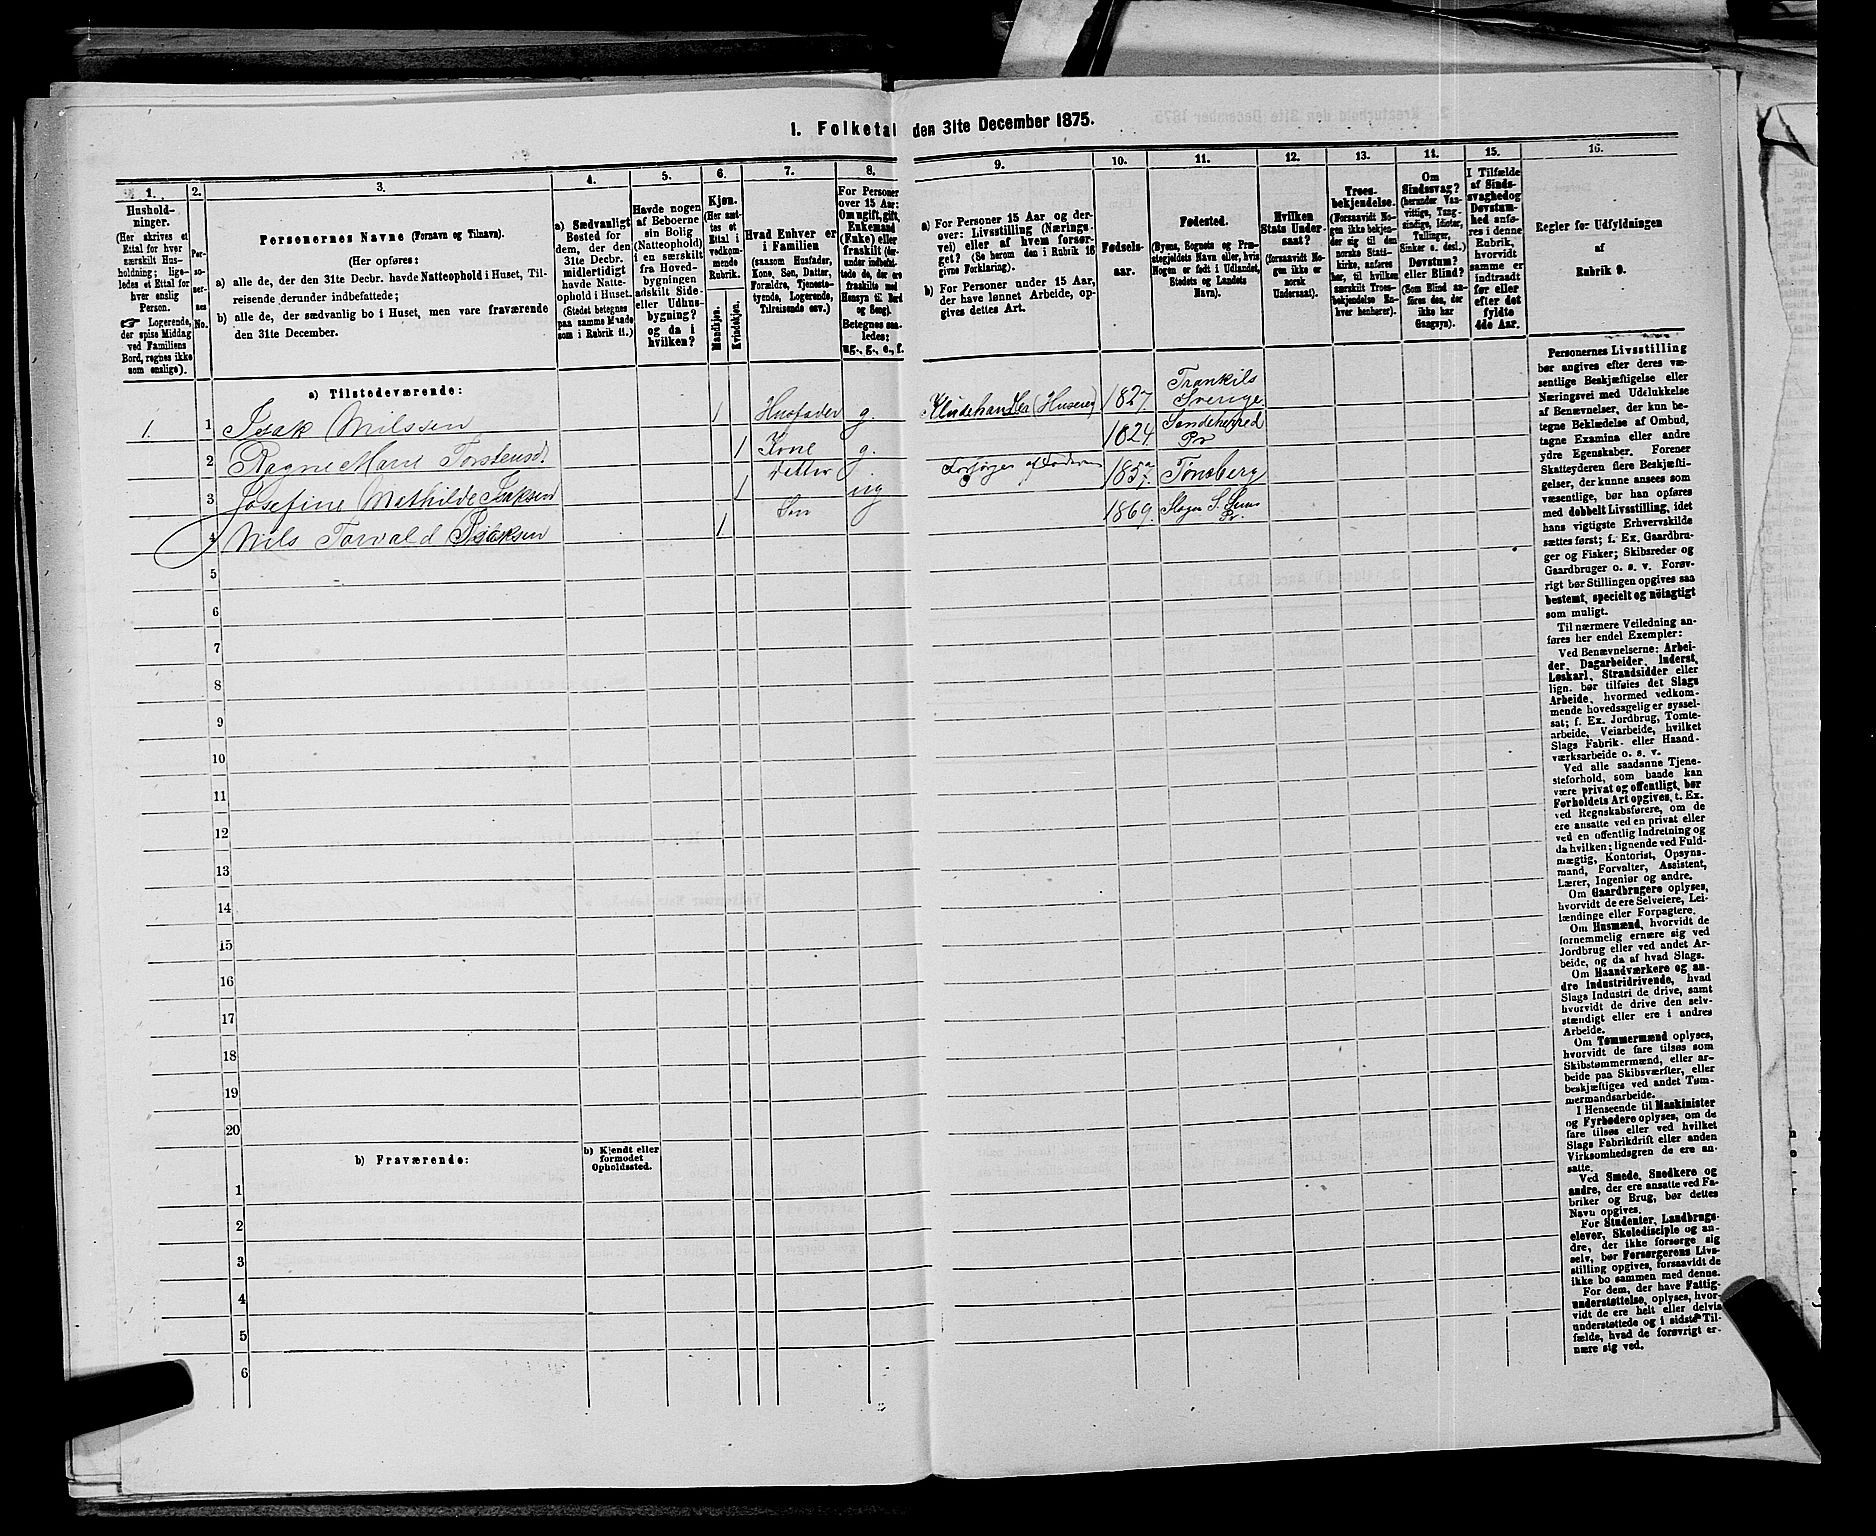 1. Folketal den 31te December 1875.
1.
Hushold-
ninger.
(Her skrives et
Ettal for hver
særskilt Hus-
holdning; lige-
ledes et Ettal for
hver enslig
Person.
Logerende,
der spise Middag
ved Familiens
Bord, regnes ikke
som enslige).
2.
Per-
so-
ner-
nes
No.
3.
Personernes Navne (Fornavn og Tilnavn).
(Her opføres:
a) alle de, der den 31te Decbr. havde Natteophold i Huset, Til-
reisende derunder indbefattede;
b) alle de, der sædvanlig bo i Huset, men vare fraværende
den 31te December.
4.
a) Sædvanligt
Bosted for
dem, der den
31te Decbr.
midlertidigt
havde Natte-
ophold i Huset.
(Stedet betegnes
paa samme Maade
som i Rubrik 11.)
5.
Havde nogen
af Beboerne
sin Bolig
(Natteophold)
i en særskilt
fra Hoved-
bygningen
adskilt Side-
eller Udhus-
bygning?
og da i
hvilken?
6.
Kjøn.
(Her sæt-
tes et
Ettal i
vedkom-
mende
Rubrik.
Mandkjøn.
Kvindekjøn.
7.
Hvad Enhver er
i Familien
(saasom Husfader,
Kone, Søn, Datter,
Forældre, Tjeneste-
tyende, Logerende,
Tilreisende osv.)
8.
For Personer
over 15 Aar:
Om ugift, gift,
Enkemand
(Enke) eller
fraskilt (der-
under indbefat-
tede de, der ere
fraskilte med
Hensyn til Bord
og Seng).
Betegnes saa-
ledes:
ug., g., e., f.
9.
a) For Personer 15 Aar og der-
over: Livsstilling (Nærings-
vei) eller af hvem forsør-
get? (Se herom den i Rubrik 16
givne Forklaring).
b) For Personer under 15 Aar,
der have lønnet Arbeide, op-
gives dettes Art.
10.
Fødsels-
aar.
11.
Fødested.
(Byens, Sognets og Præ-
stegjeldets Navn, eller, hvis
Nogen er født i Udlandet,
Stedets og Landets
Navn).
12.
Hvilken
Stats Under-
saat?
(forsaavidt No-
gen ikke er
norsk
Undersaat).
13.
Troes-
bekjendelse.
(Forsaavidt No-
gen ikke bekjen-
der sig til den
norske Stats-
kirke, anføres
her, til hvilken
særskilt Troes-
bekjendelse En-
hver henhører).
14.
Om
Sindssvag?
(herunder Van-
vittige, Tung-
sindige, Idioter,
Tullinger,
Sinker o. desl.)
Døvstum?
eller Blind?
(Som Blind an-
føres den, der
ikke har
Gangsyn).
15.
I Tilfælde
af Sinds-
svaghed og
Døvstum-
hed anfø-
res i denne
Rubrik,
hvorvidt
samme er
indtraadt
før eller
efter det
fyldte
4de Aar.
16.
Regler for Udfyldningen
af
Rubrik 9.
a) Tilstedeværende:
1. 1 Isak Nilssen 1 Husfader g. Kludehandler (Huseier) 1827. Trankils Sverige.
2 Ragne Marie Torstensd. 1 Kone g. 1824. Sandeherred Pr
3 Josefine Mathilde Isaksen 1 Datter ug Forsørges af Faderen 1857. Tønsberg
4 Nils Torvald Isaksen 1 Søn 1869. Slagn S. Sems Pr.
5
6
7
8
9
10
11
12
13
14
15
16
17
18
19
20
b) Fraværende:
b) Kjendt eller
formodet
Opholdssted.
1
2
3
4
5
6
Personernes Livsstilling
bør angives efter deres væ-
sentlige Beskjæftigelse eller
Næringsvei med Udelukkelse
af Benævnelser, der kun be-
tegne Beklædelse af Ombud,
tagne Examina eller andre
ydre Egenskaber. Forener
Skatteyderen flere Beskjæfti-
gelser, der kunne ansees som
væsentlige, bør han opføres
med dobbelt Livsstilling, idet
hans vigtigste Erhvervskilde
sættes først; f. Ex. Gaardbru-
ger og Fisker; Skibsreder og
Gaardbruger o. s. v. Forøv-
rigt bør Stillingen opgives saa
bestemt, specielt og nöiagtigt
som muligt.
Til nærmere Veiledning an-
føres her endel Exempler:
Ved Benævnelserne: Arbei-
der, Dagarbeider, Inderst,
Løskarl, Strandsidder eller
lign. bør tilføies det Slags
Arbeide, hvormed vedkom-
mende hovedsagelig er syssel-
sat; f. Ex. Jordbrug, Tomte-
arbeide, Veiarbeide, hvilket
Slags Fabrik- eller Haand-
værksarbeide o. s. v.
Ved alle saadanne Tjene-
steforhold, som baade kan
være privat og offentligt, bør
Forholdets Art opgives, t. Ex.
ved Regnskabsførere, om de
ere ansatte ved en privat eller
ved en offentlig Indretning og
da hvilken; lignende ved Fuld-
mægtig, Kontorist, Opsyns-
mand, Forvalter, Assistent,
Lærer, Ingeniør og andre.
Om Gaardbrugere oplyses,
hvorvidt de ere Selveiere, Lei-
lændinge eller Forpagtere.
Om Husmænd, hvorvidt de
fornemmelig ernære sig ved
Jordbrug eller ved andet Ar-
beide, og da af hvad Slags.
Om Haandværkere og an-
dre Industridrivende, hvad
Slags Industri de drive, samt
hvorvidt de drive den selv-
stændigt eller ere i andres
Arbeide.
Om Tømmermænd oplyses,
hvorvidt de fare tilsøs som
Skibstømmermænd, eller ar-
beide paa Skibsværfter, eller
beskjæftiges ved andet Tøm-
mermandsarbeide.
I Henseende til Maskinister
og Fyrbødere oplyses, om de
fare tilsøs eller ved hvilket
Slags Fabrikdrift eller anden
Virksomhedsgren de ere an-
satte.
Ved Smede, Snedkere og
andre, der ere ansatte ved Fa-
briker og Brug, bør dettes
Navn opgives.
For Studenter, Landbrugs-
elever, Skoledisciple og an-
dre, der ikke forsørge sig
selv, bør Forsørgerens Livs-
stilling opgives, forsaavidt de
ikke bo sammen med denne.
For dem, der have Fattig-
understøttelse, oplyses, hvor-
vidt de ere helt eller delvis
understøttede og i sidste Til-
fælde, hvad de forøvrigt er-
nære sig ved.